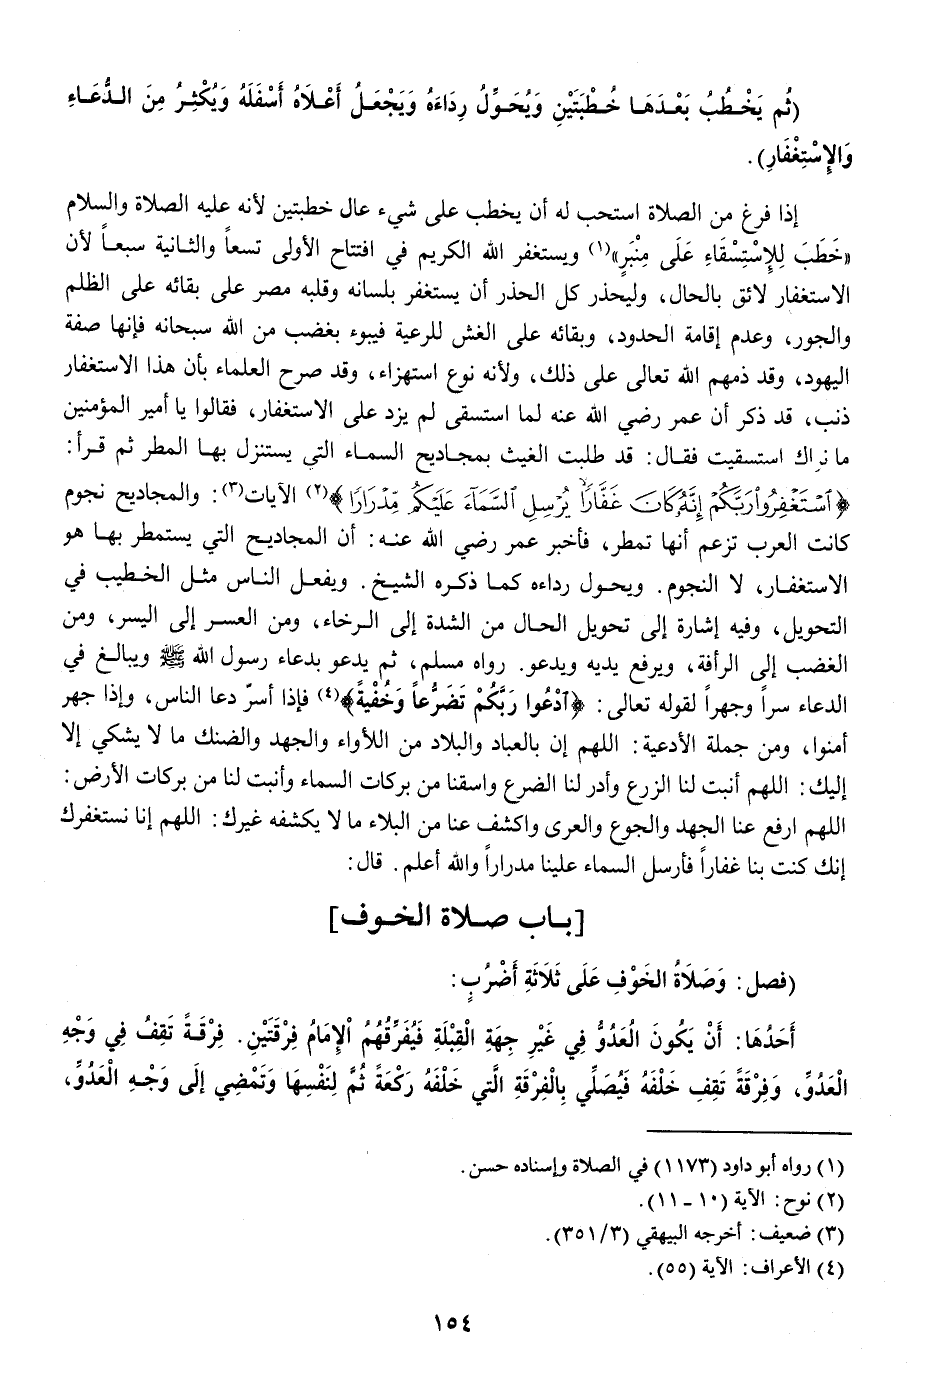 (ثُم يَخْطُبُ بَعْدَهَا خُطْبَتَيْنِ وَيُحَوِّلُ رِدَاءَهُ وَيَجْعَلُ أَعْلَاهُ أَسْفَلَهُ وَيُكْثِرُ مِنَ الدُّعَاءِ
وَالإِسْتِغْفَارِ).
إذا فرغ من الصلاة استحب له أن يخطب على شيء عال خطبتين لأنه عليه الصلاة والسلام
«خَطَبَ لِلإِسْتِسْقَاءِ عَلَى مِنْبَرٍ»(١) ويستغفر الله الكريم في افتتاح الأولى تسعاً والثانية سبعاً لأن
الاستغفار لائق بالحال، وليحذر كل الحذر أن يستغفر بلسانه وقلبه مصر على بقائه على الظلم
والجور، وعدم إقامة الحدود، وبقائه على الغش للرعية فيبوء بغضب من الله سبحانه فإنها صفة
اليهود، وقد ذمهم الله تعالى على ذلك، ولأنه نوع استهزاء، وقد صرح العلماء بأن هذا الاستغفار
ذنب، قد ذكر أن عمر رضي الله عنه لما استسقى لم يزد على الاستغفار، فقالوا يا أمير المؤمنين
ما نراك استسقيت فقال: قد طلبت الغيث بمجاديح السماء التي يستنزل بها المطر ثم قرأ:
﴿ٱسْتَغْفِرُوا۟ رَبَّكُمْ إِنَّهُ كَانَ غَفَّارًا يُرْسِلِ ٱلسَّمَآءَ عَلَيْكُم مِّدْرَارًا﴾(٢) الآيات(٣): والمجاديح نجوم
كانت العرب تزعم أنها تمطر، فأخبر عمر رضي الله عنه: أن المجاديح التي يستمطر بها هو
الاستغفار، لا النجوم. ويحول رداءه كما ذكره الشيخ. ويفعل الناس مثل الخطيب في
التحويل، وفيه إشارة إلى تحويل الحال من الشدة إلى الرخاء، ومن العسر إلى اليسر، ومن
الغضب إلى الرأفة، ويرفع يديه ويدعو. رواه مسلم، ثم يدعو بدعاء رسول الله ﷺ ويبالغ في
الدعاء سراً وجهراً لقوله تعالى: ﴿ٱدْعُوا رَبَّكُمْ تَضَرُّعاً وَخُفْيةً﴾(٤) فإذا أسرّ دعا الناس، وإذا جهر
أمنوا، ومن جملة الأدعية: اللهم إن بالعباد والبلاد من اللأواء والجهد والضنك ما لا يشكي إلا
إليك: اللهم أنبت لنا الزرع وأدر لنا الضرع واسقنا من بركات السماء وأنبت لنا من بركات الأرض:
اللهم ارفع عنا الجهد والجوع والعرى واكشف عنا من البلاء ما لا يكشفه غيرك: اللهم إنا نستغفرك
إنك كنت بنا غفاراً فأرسل السماء علينا مدراراً والله أعلم. قال:
[باب صلاة الخوف]
(فصل: وَصَلَاةُ الخَوْفِ عَلَى ثَلَاثَةِ أَضْرُبٍ:
أَحَدُهَا: أَنْ يَكُونَ الْعَدُوُّ فِي غَيْرِ جِهَةِ الْقِبْلَةِ فَيُفَرِّقُهُمُ الإِمَامُ فِرْقَتَيْنِ. فِرْقَةً تَقِفُ فِي وَجْهِ
الْعَدُوِّ، وَفِرْقَةً تَقِفِ خَلْفَهُ فَيُصَلِّي بِالْفِرْقَةِ الَّتي خَلْفَهُ رَكْعَةً ثُمَّ لِنَفْسِهَا وَتَمْضِي إلَى وَجْهِ الْعَدُوِّ،
(١) رواه أبو داود (١١٧٣) في الصلاة وإسناده حسن.
(٢) نوح: الآية (١٠ - ١١).
(٣) ضعيف: أخرجه البيهقي (٣/ ٣٥١).
(٤) الأعراف: الآية (٥٥).
١٥٤